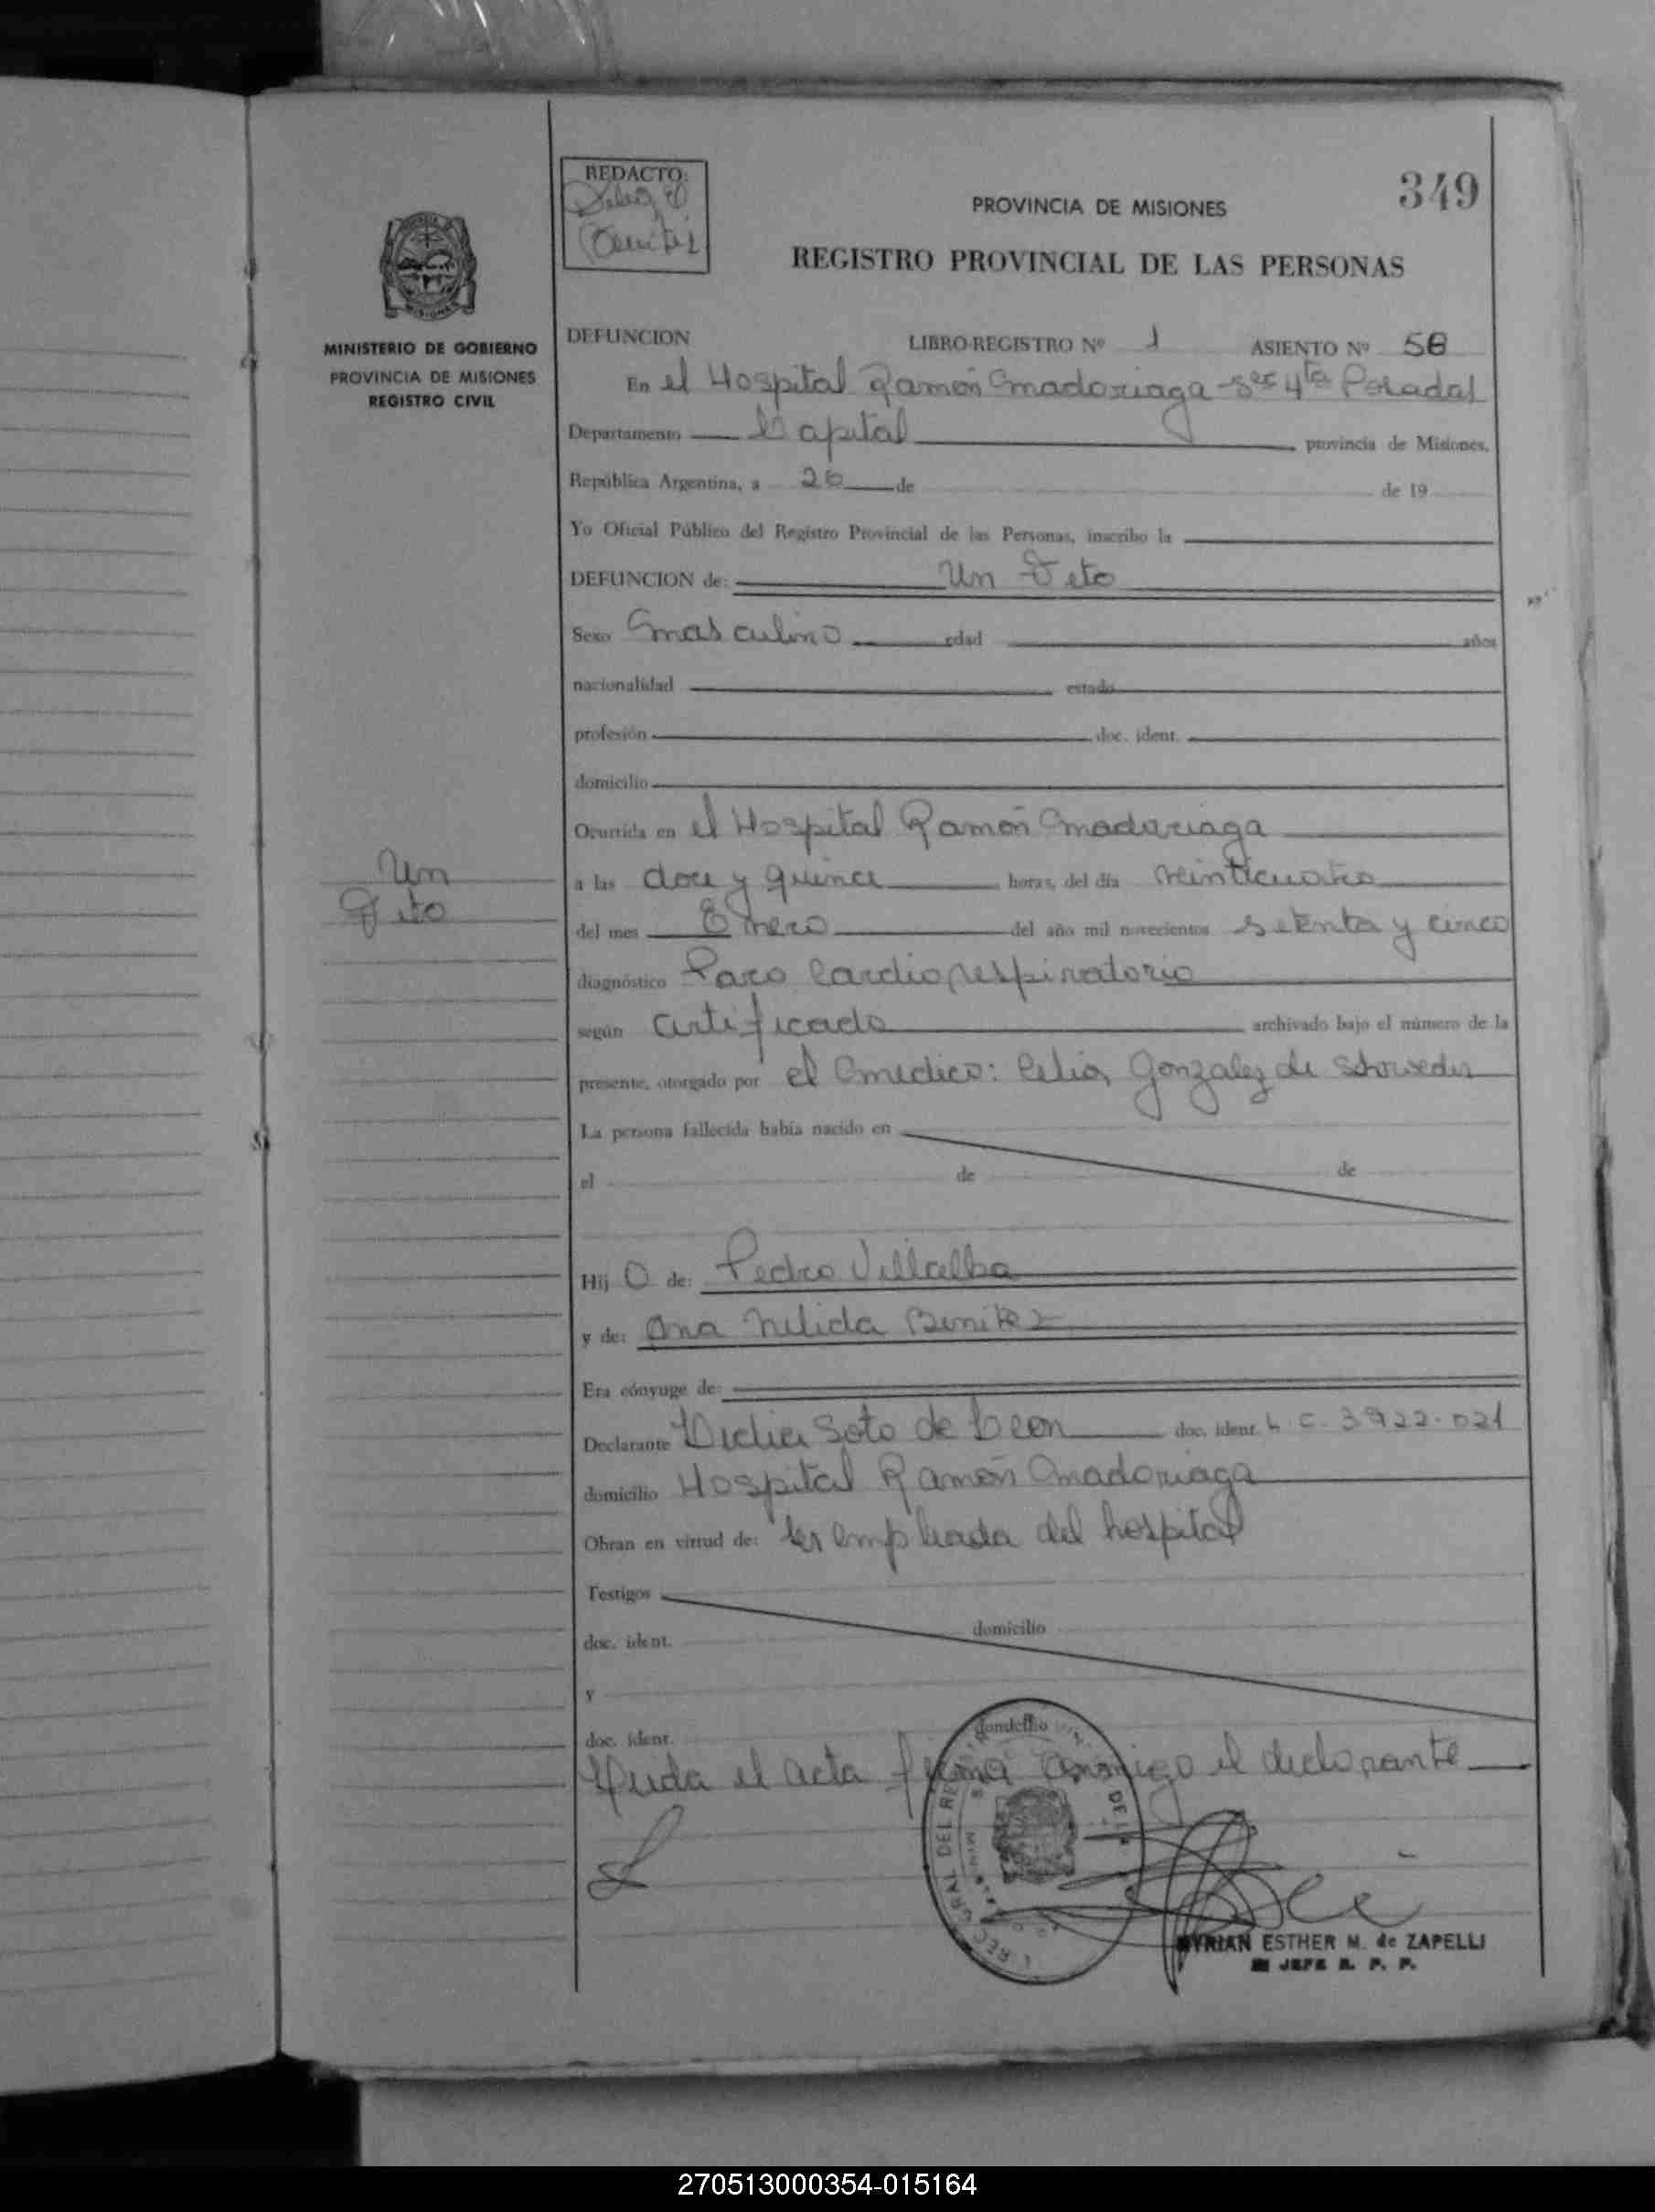 REDACTO:
Benitez
PROVINCIA DE MISIONES
349
REGISTRO PROVINCIAL DE LAS PERSONAS
MINISTERIO DE GOBIERNO
PROVINCIA DE MISIONES
REGISTRO CIVIL
DEFUNCION LIBRO-REGISTRO Nº 1 ASIENTO Nº 58
En el Hospital Ramón Madariaga - Sec 4ta Posadas
Departamento Capital provincia de Misiones,
República Argentina, a 26 de de 19
Yo Oficial Público del Registro Provincial de las Personas, inscribo la
DEFUNCION de: Un Feto
Sexo Masculino edad años
nacionalidad estado
profesión doc. ident.
domicilio
Ocurrida en el Hospital Ramón Madariaga
Un
Feto
a las doce y quince horas, del día veinticuatro
del mes Enero del año mil novecientos setenta y cinco
diagnóstico Paro Cardiorespiratorio
según Certificado archivado bajo el número de la
presente, otorgado por el Medico: Celia Gonzalez de
La persona fallecida había nacido en
el de de
Hij o de: Pedro Villalba
y de: Ana Nelida Benitez
Era cónyuge de:
Declarante Soto de Leon doc. ident. L.C. 3922.021
domicilio Hospital Ramón Madariaga
Obran en virtud de: ser empleada del hospital
Testigos
doc. ident. domicilio
y
doc. ident. domicilio
Leida el acta firma conmigo el declarante
MYRIAN ESTHER M. de ZAPELLI
JEFE R. P. P.
270513000354-015164